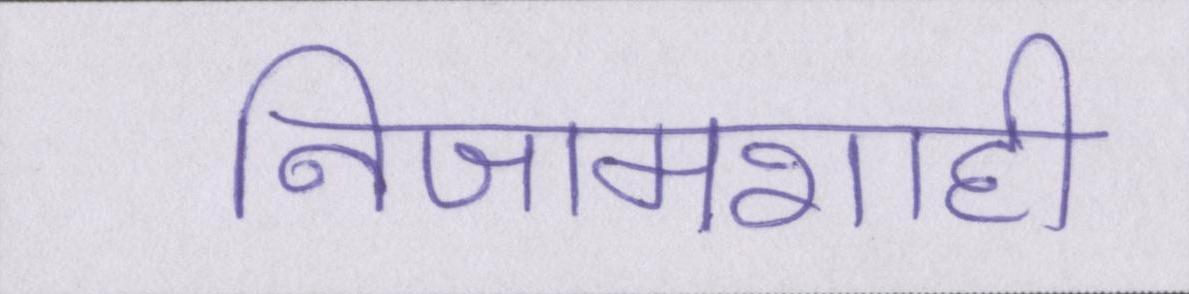 निजामशाही